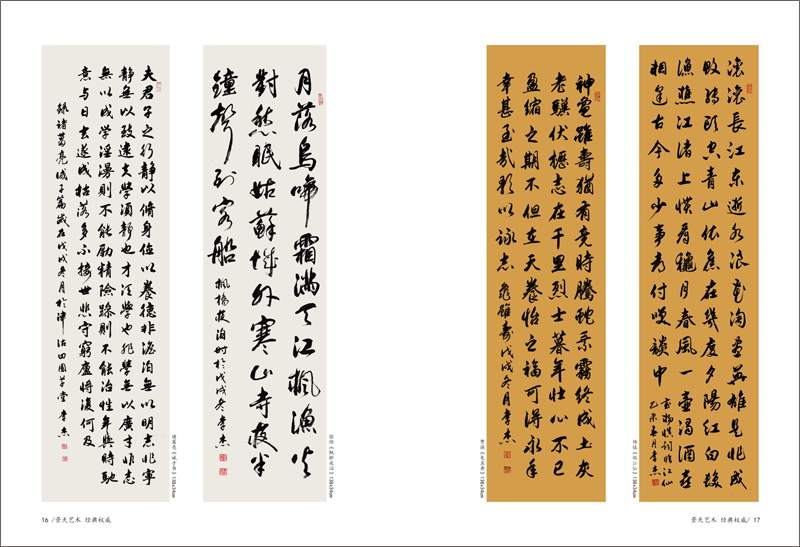 夫君子之行静以修身俭以養德非澹泊無以明志非寧
静無以致遠夫學須静也才須學也非學無以廣才非志
無以成学淫漫則不能勵精險躁則不能冶性年與時馳
意与日去遂成枯落多不接世悲守窮廬將復何及
録诸葛亮诫子篇歲在戊戌冬月於津沽田園草堂李杰
诸葛亮《诫子书》138x34cm
月落烏啼霜满天江楓漁火
對愁眠姑蘇城外寒山寺夜半
鐘聲到客船
楓橋夜泊时於戊戌冬李杰
张继《枫桥夜泊》138x34cm
16 /景天艺术 经典权威
滚滚長江东逝水浪花淘盡英雄是非成
敗转头空青山依舊在幾度夕陽红白髮
漁樵江渚上惯看穐月春風一壶濁酒喜
相逢古今多少事都付笑談中
录杨慎词临江仙
春月李杰
杨慎《临江仙》138x34cm
神龜雖壽猶有竟時騰蛇乘霧終成土灰
老驥伏櫪志在千里烈士暮年壮心不已
盈縮之期不但在天養怡之福可得永年
幸甚至哉歌以詠志 龟雖壽戊戌冬月李杰
曹操《龟虽寿》138x34cm
景天艺术 经典权威/ 17